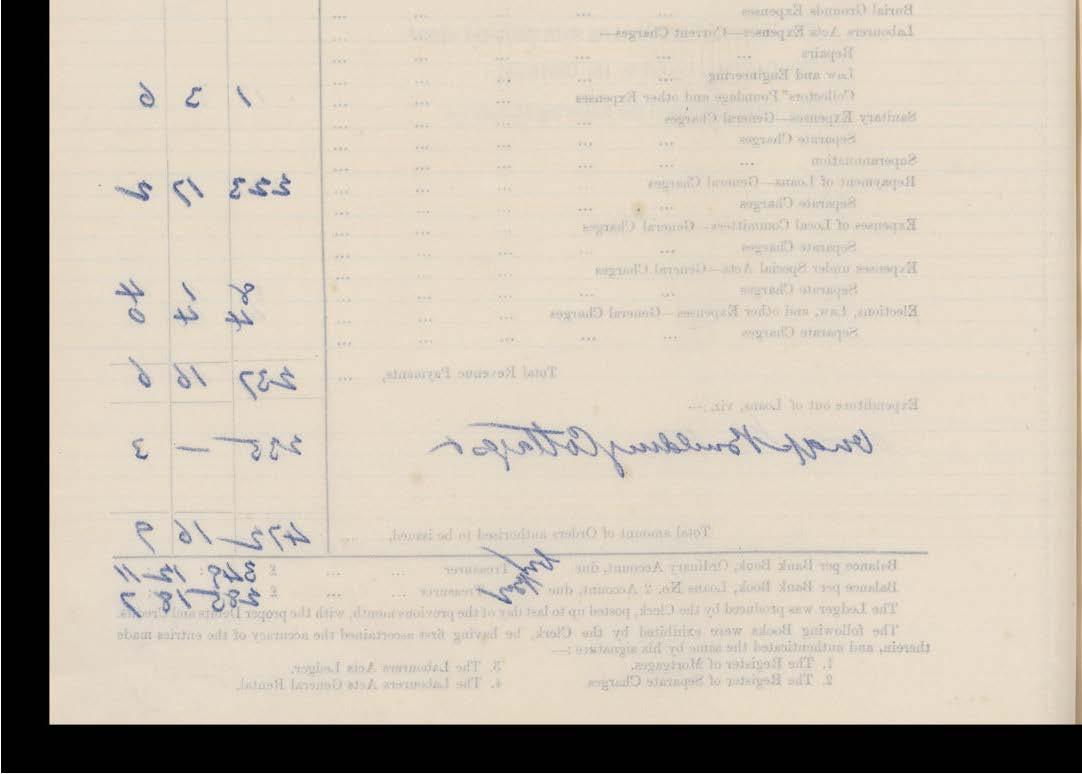 Burial Grounds Expenses ... ... ... ...
Labourers Acts Expenses—Current Charges— ...
Repairs ... ... ... ... ...
Law and Engineering ... ... ... ...
Collectors' Poundage and other Expenses ... ... ... 1 3 6
Sanitary Expenses—General Charges ... ... ... ...
Separate Charges ... ... ... ... ...
Superannuation ... ... ... ... ...
Repayment of Loans—General Charges ... ... ... 223 17 2
Separate Charges ... ... ... ... ...
Expenses of Local Committees—General Charges ... ...
Separate Charges ... ... ... ... ...
Expenses under Special Acts—General Charges ... ... ...
Separate Charges ... ... ... ... ... 8 1 4
Elections, Law, and other Expenses—General Charges ... ... ... 4 14 6
Separate Charges ... ... ... ... ...
Total Revenue Payments, ... 237 16 6
Expenditure out of Loans, viz.:—
Building Cottages 235 — 3
Total amount of Orders authorised to be issued, ... 472 16 9
Balance per Bank Book, Ordinary Account, due Treasurer ... ... £ 12 11
Balance per Bank Book, Loans No. 2 Account, due Treasurer ... ... £ 18 7
The Ledger was produced by the Clerk, posted up to last day of the previous month, with the proper Debits and Credits.
The following Books were exhibited by the Clerk, he having first ascertained the accuracy of the entries made
therein, and authenticated the same by his signature :—
1. The Register of Mortgages. 3. The Labourers Acts Ledger.
2. The Register of Separate Charges 4. The Labourers Acts General Rental.